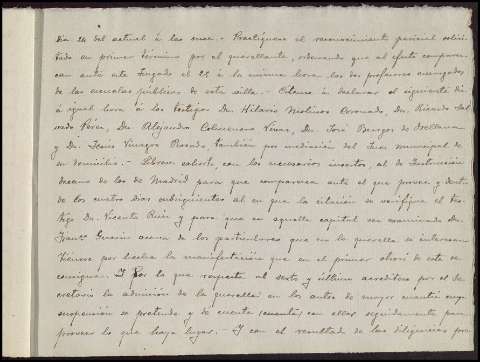 dia 24 del actual á las once.- Practíquese el reconocimiento pericial solici-
tado en primer término por el querellante, ordenando que al efecto comparez-
can ante este Juzgado el 25 á la misma hora los dos profesores encargados
de las escuelas públicas de esta villa.- Cítense á declarar el siguiente dia
á igual hora á los testigos Dn. Hilario Molinos Coronado, Dn. Ricardo Sal-
vado Dn. Alejandro Dn. José de Orellana
y Dn. Jesus Vinagre Rosado, tambien por mediacion del Juez municipal de
su domicilio.- Líbrese exhorto, con los necesarios insertos, al de Instruccion
decano de los de Madrid para que comparezca ante el que provee, y dentro
de los cuatro dias subsiguientes al en que la citacion se verifique el tes-
tigo Dn. Vicente Ruiz y para que en aquella capital sea examinado Dn.
acerca de los particulares que en la querella se interesan
Tiénese por hecha la manifestacion que en el primer otrosí de esta se
consigna. Y por lo que respecta al sexto y último acredítese por el
la admision de la querella en los autos de mayor cuantía cuya
suspension se pretende y dé cuenta (cuenta) con ellos seguidamente para
proveer lo que haya lugar.- Y con el resultado de las diligencias